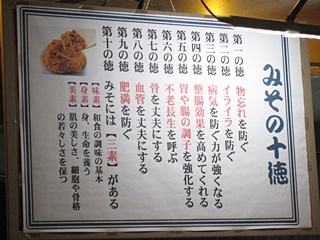 みその十徳
第一の徳　物忘れを防ぐ
第二の徳　イライラを防ぐ
第三の徳　病気を防ぐ力が強くなる
第四の徳　整腸効果を高めてくれる
第五の徳　胃や腸の調子を強化する
第六の徳　不老長生を呼ぶ
第七の徳　骨を丈夫にする
第八の徳　血管を丈夫にする
第九の徳　肥満を防ぐ
第十の徳　みそには【三素】がある
【味素】和食の調味の基本
【身素】身、生命を養う
【美素】肌の美しさ、細胞や骨格
の若々しさを保つ